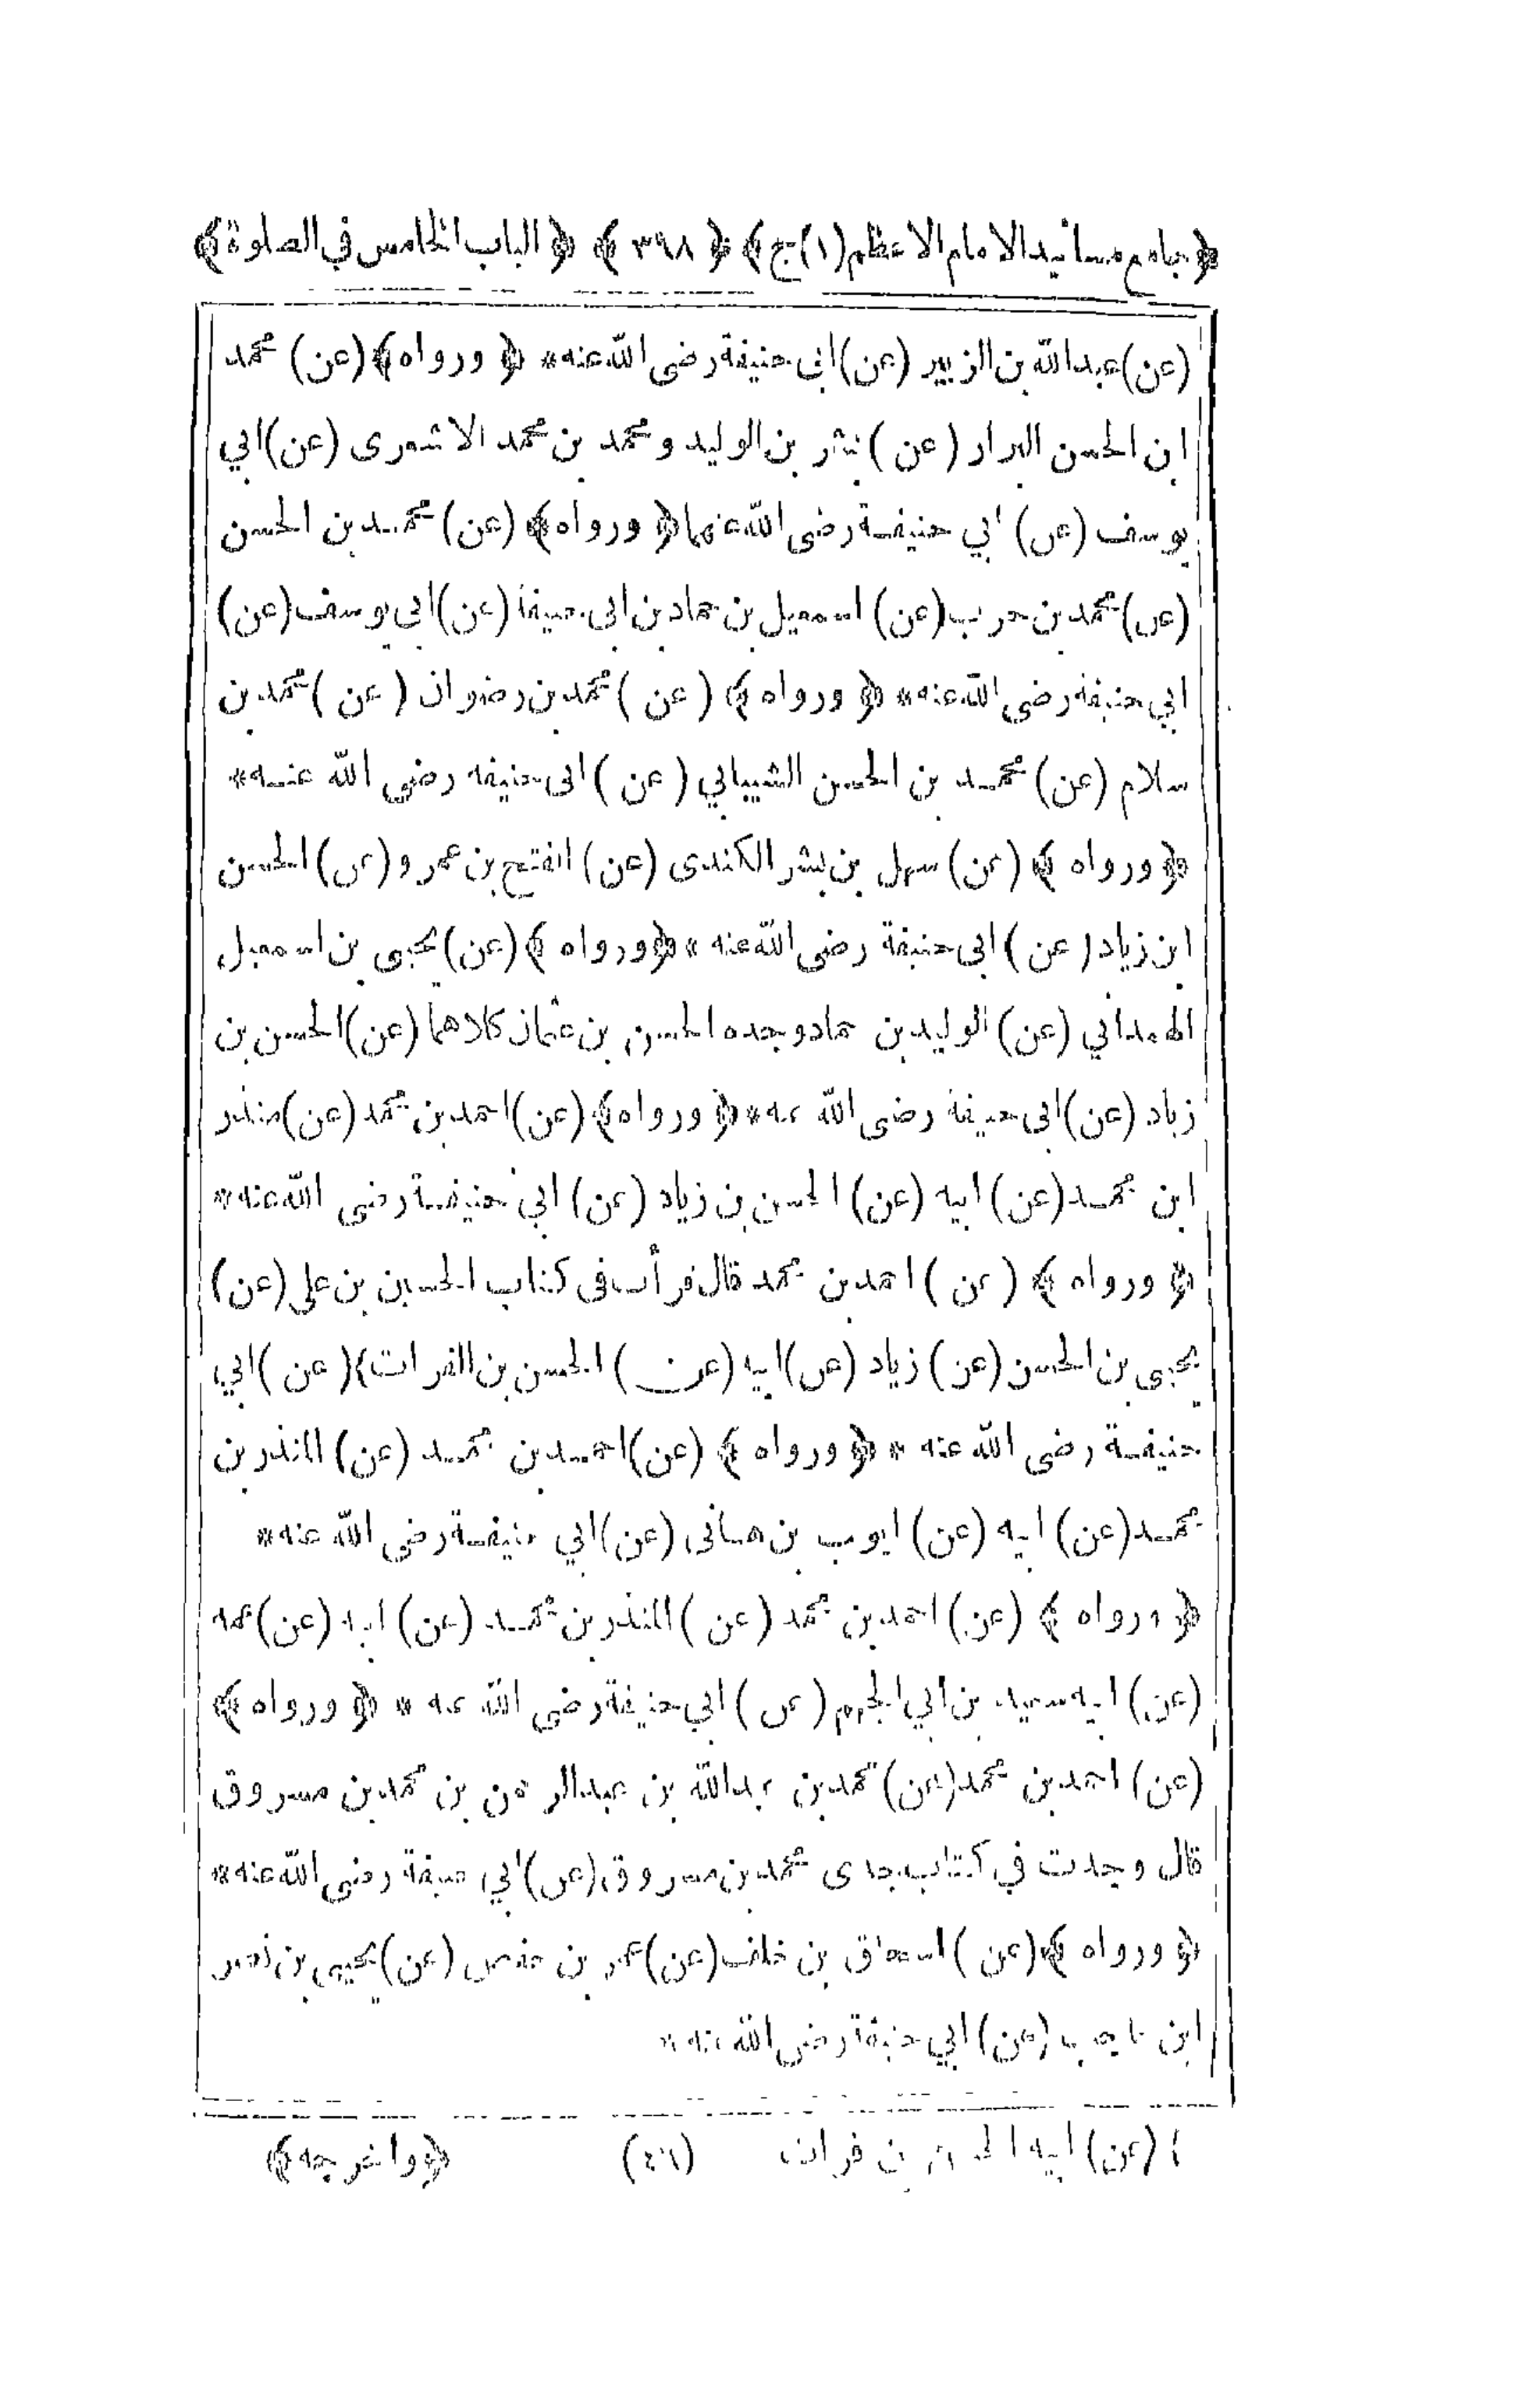 ﴿جامع مسانيد الامام الاعظم (١) ج﴾ ﴿٣٩٨﴾ ﴿الباب الخامس في الصلوة﴾
(عن) عبد الله بن الزبير (عن) ابى حنيفة رضى الله عنه * ﴿ورواه﴾ (عن) محمد
ابن الحسن البزار (عن) بشر بن الوليد ومحمد بن محمد (عن) ابي
يوسف (عن) ابي حنيفة رضى الله عنهما ﴿ورواه﴾ (عن) محمد بن الحسن
(عن) محمد بن حرب (عن) اسمعيل بن حماد بن ابى حنيفة (عن) ابى يوسف (عن)
ابي حنيفة رضى الله عنه * ﴿ورواه﴾ (عن) محمد بن رضوان (عن) محمد بن
سلام (عن) محمد بن الحسن الشيباني (عن) ابى حنيفه رضى الله عنه *
﴿ورواه﴾ (عن) سهل بن بشر الكندى (عن) الفتح بن عمرو (عن) الحسن
ابن زياد (عن) ابى حنيفة رضى الله عنه * ﴿ورواه﴾ (عن) يحيى بن اسمعيل
الهمداني (عن) الوليد بن حماد وجده الحسن بن عثمان كلاهما (عن) الحسن بن
زياد (عن) ابى حنيفة رضى الله عنه * ﴿ورواه﴾ (عن) احمد بن محمد (عن) منذر
ابن محمد (عن) ابيه (عن) الحسن بن زياد (عن) ابي حنيفة رضى الله عنه *
﴿ورواه﴾ (عن) احمد بن محمد قال قرأت فى كتاب الحسين بن على (عن)
يحيى بن الحسن (عن) زياد (عن) ابيه (عن) الحسن بن الفرات} (عن) ابي
حنيفة رضى الله عنه * ﴿ورواه﴾ (عن) احمد بن محمد (عن) المنذر بن
محمد (عن) ابيه (عن) ايوب بن هانى (عن) ابي حنيفة رضى الله عنه *
﴿ورواه﴾ (عن) احمد بن محمد (عن) المنذر بن محمد (عن) ابيه (عن) عمه
(عن) ابيه سعيد بن ابي الجهم (عن) ابي حنيفة رضى الله عنه * ﴿ورواه﴾
(عن) احمد بن محمد (عن) محمد بن عبد الله بن عبد الرحمن بن محمد بن مسروق
قال وجدت في كتاب جدى محمد بن مسروق (عن) ابي حنيفة رضى الله عنه *
﴿ورواه﴾ (عن) اسحاق بن خلف (عن) عمر بن حفص (عن) يحيى بن نصر
ابن حاجب (عن) ابي حنيفة رضى الله عنه *
(عن) ابيه بن فرات ﴿واخرجه﴾